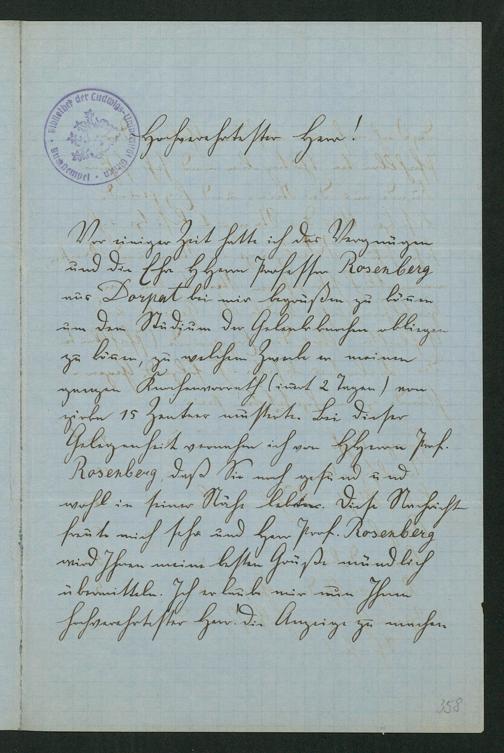 Bibliothek der Ludwigs-Univ. Giessen
Hochverehrtester Herr!
Vor einiger Zeit hatte ich das Vergnügen
und die Ehre HHerrn Professor Rosenberg
aus Dorpat bei mir begrüßen zu können
um dem Studium der Gelenkknochen obliegen
zu können, zu welchem Zwecke er meinen
ganzen Knochenvorrath (innert 2 Tagen) von
zirka 15 Zentner musterte. Bei dieser
Gelegenheit vernahm ich von HHerrn Prof.
Rosenberg, daß Sie noch gesund und
wohl in seiner Nähe leben. Diese Nachricht
freute mich sehr und Herr Prof. Rosenberg
wird Ihnen meine besten Grüße mündlich
übermitteln. Ich erlaube mir nun Ihnen
hochverehrtester Herr! die Anzeige zu machen
358